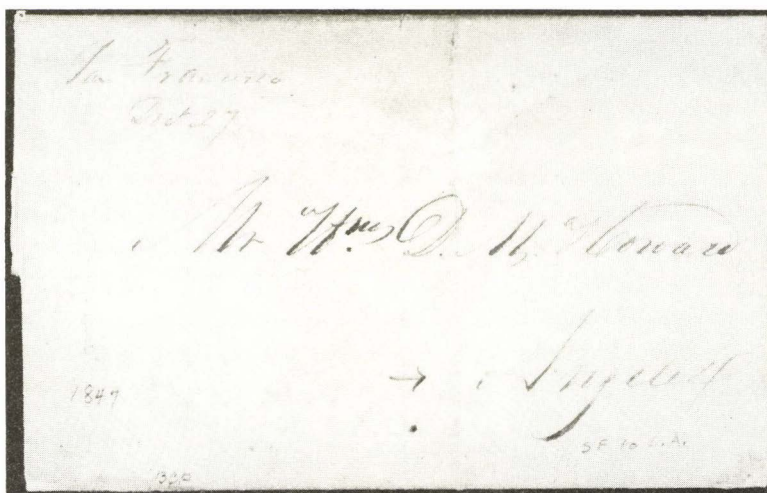 San Francisco
Oct 27
Mr Wm D. M. Howard
Angeles
1847
SF to L.A.